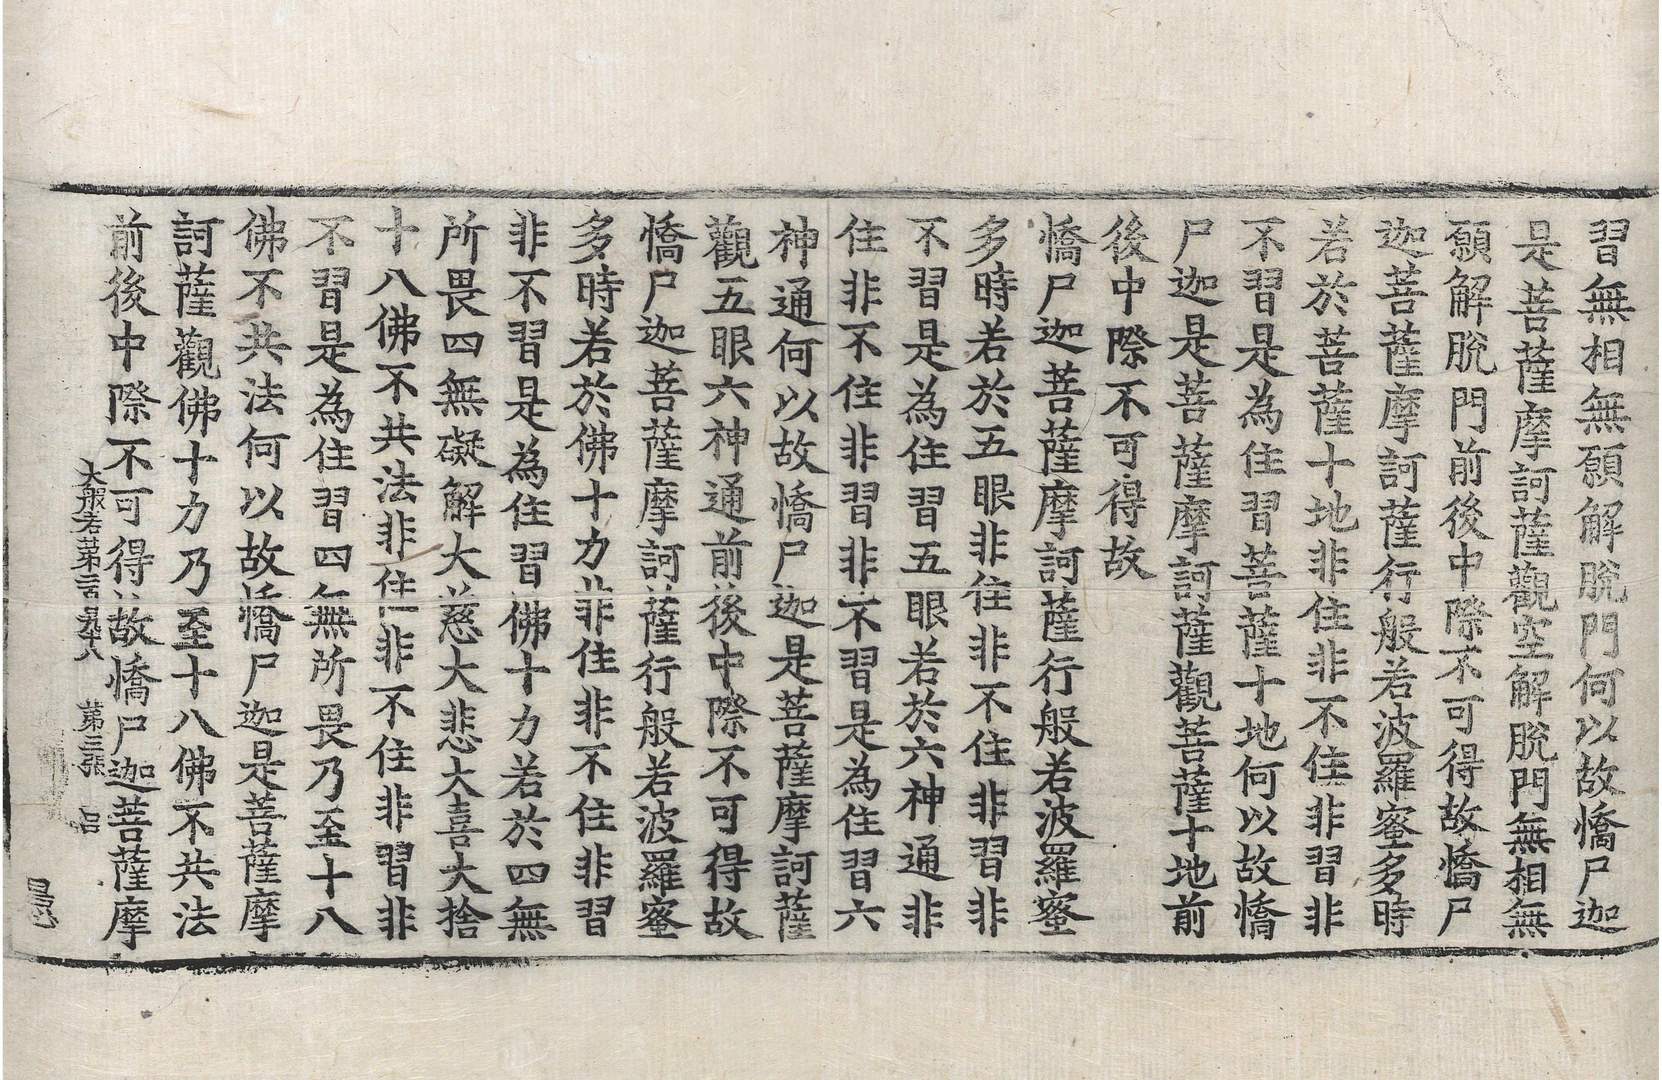 習無相無願解脫門何以故憍尸迦
是菩薩摩訶薩觀空解脫門無相無
願解脫門前後中際不可得故憍尸
迦菩薩摩訶薩行般若波羅蜜多時
若於菩薩十地非住非不住非習非
不習是為住習菩薩十地何以故憍
尸迦是菩薩摩訶薩觀菩薩十地前
後中際不可得故
憍尸迦菩薩摩訶薩行般若波羅蜜
多時若於五眼非住非不住非習非
不習是為住習五眼若於六神通非
住非不住非習非不習是為住習六
神通何以故憍尸迦是菩薩摩訶薩
觀五眼六神通前後中際不可得故
憍尸迦菩薩摩訶薩行般若波羅蜜
多時若於佛十力非住非不住非習
非不習是為住習佛十力若於四無
所畏四無礙解大慈大悲大喜大捨
十八佛不共法非住非不住非習非
不習是為住習四無所畏乃至十八
佛不共法何以故憍尸迦是菩薩摩
訶薩觀佛十力乃至十八佛不共法
前後中際不可得故憍尸迦菩薩摩
大般若第二百九十八 第三張